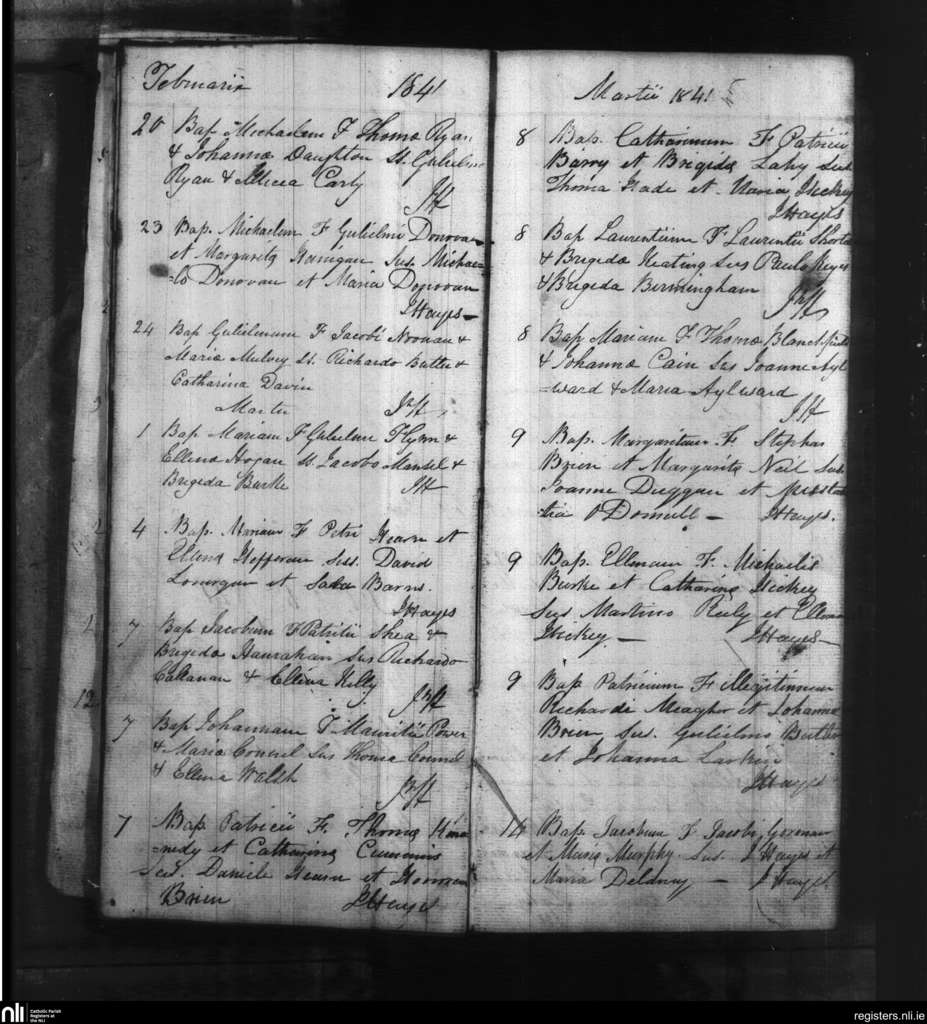 Februarii 1841
20 Bap Michaelem F Thomæ Ryan
& Johanna Daughton Ss. Gulielmo
Ryan & Alicia Carty
JH
23 Bap. Michaelem F Gulielmi Donovan
et Margarita Hanigan Sus. Michae=
=lo Donovan et Maria Donovan
JHayes
24 Bap Gulielmum F Jacobi Noonan &
Maria Mulvey Ss. Richardo Butler &
Catharina Davin
Martii JH
1 Bap Mariam F Gulielmi Flynn &
Ellena Hogan Ss. Jacobo Mansel &
Brigeda Burke JH
4 Bap. Mariam F Petri Hearn et
Ellena Hefferan Sus. David
Lonergan et Barns.
JHayes
7 Bap Jacobum F Patritii Shea &
Brigeda Hanrahan Sus Richardo
Callanan & Ellena Kelly
JH
7 Bap Johannam F Mauritii Power
& Maria Counsel Sus Thoma Counsel
& Ellena Walsh
JH
7 Bap. Patricii F. Thoma Kenn
nedy et Catharina Cummins
Sus. Daniele Hearn et
Brien JHayes
Martii 1841
8 Bap. Catharinum F Patricii
Barry et Brigida Lahy Sus.
Thoma Hade et Maria Hickey
JHayes
8 Bap Laurentium F Laurentii
& Brigeda Keating Sus Paulo Keyes
& Brigeda Bermingham
JH
8 Bap Mariam F Thoma Blanchfield
& Johanna Cain Sus Joanne Ayl
=ward & Maria Aylward
JH
9 Bap. Margaritam F. Stephan
Brien et Margarita Neil Sus.
Joanne Duggan et
tia O Donnell — JHayes.
9 Bap. Ellenam F. Michaelis
Burke et Catharina Hickey
Sus Martino Riely et Ellena
Hickey — JHayes
9 Bap Patricium F illegitimum
Richardi Meagher et Johanna
Brien Sus. Gulielmo Butler
et Johanna Larkin
JHayes
14 Bap. Jacobum F Jacobi Gorman
et Maria Murphy Sus. J Hayes et
Maria Delaney — J Hayes
nli
Catholic Parish
Registers at
the NLI
registers.nli.ie